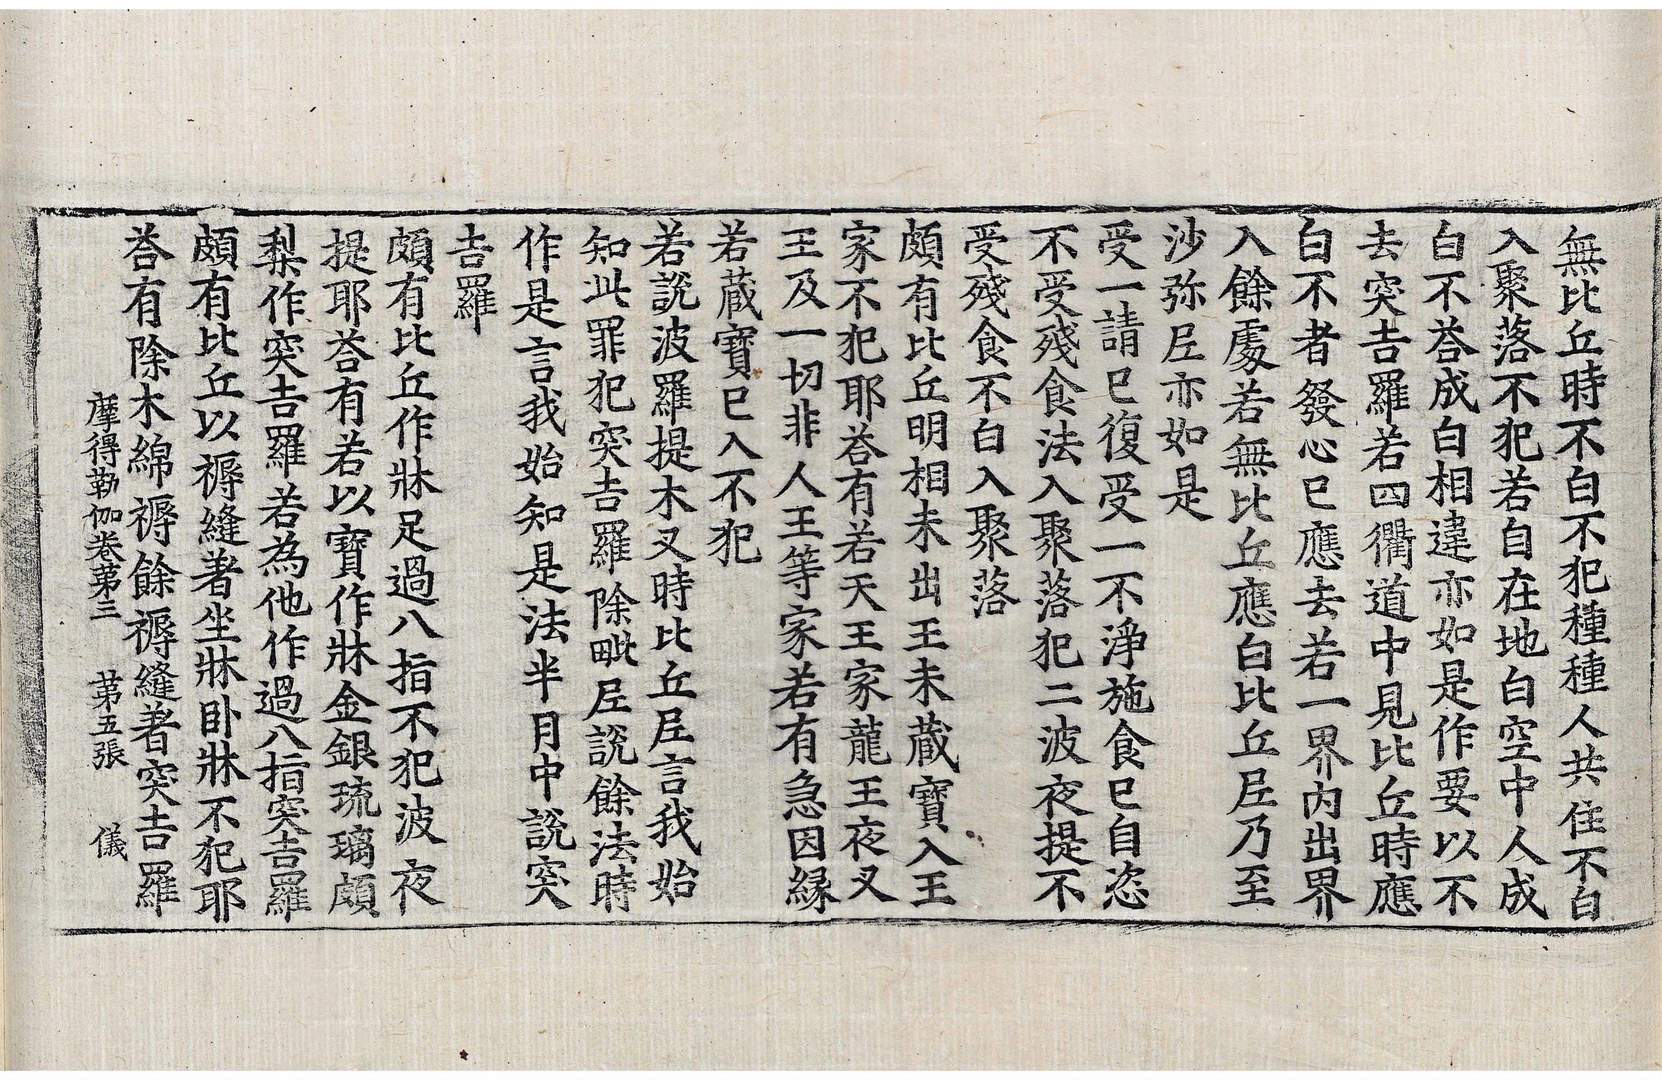 無比丘時不白不犯種種人共住不白
入聚落不犯若自在地白空中人成
白不荅成白相違亦如是作要以不
去突吉羅若四衢道中見比丘時應
白不者發心已應去若一界內出界
入餘處若無比丘應白比丘尼乃至
沙弥尼亦如是
受一請已復受一不淨施食已自恣
不受殘食法入聚落犯二波夜提不
受殘食不白入聚落
頗有比丘明相未出王未蔵寶入王
家不犯耶荅有若天王家龍王夜叉
王及一切非人王等家若有急因縁
若蔵寶已入不犯
若說波羅提木叉時比丘尼言我始
知此罪犯突吉羅除毗尼說餘法時
作是言我始知是法半月中說突
吉羅
頗有比丘作牀足過八指不犯波夜
提耶荅有若以寶作牀金銀琉璃頗
梨作突吉羅若為他作過八指突吉羅
頗有比丘以褥縫著坐牀卧牀不犯耶
荅有除木綿褥餘褥縫著突吉羅
摩得勒伽卷第三 第五張 儀